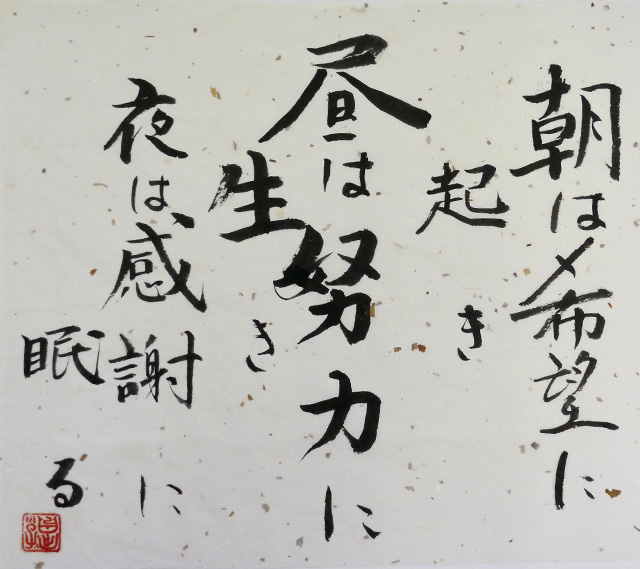 朝は希望に
起き
昼は努力に
生き
夜は、感謝に
眠る